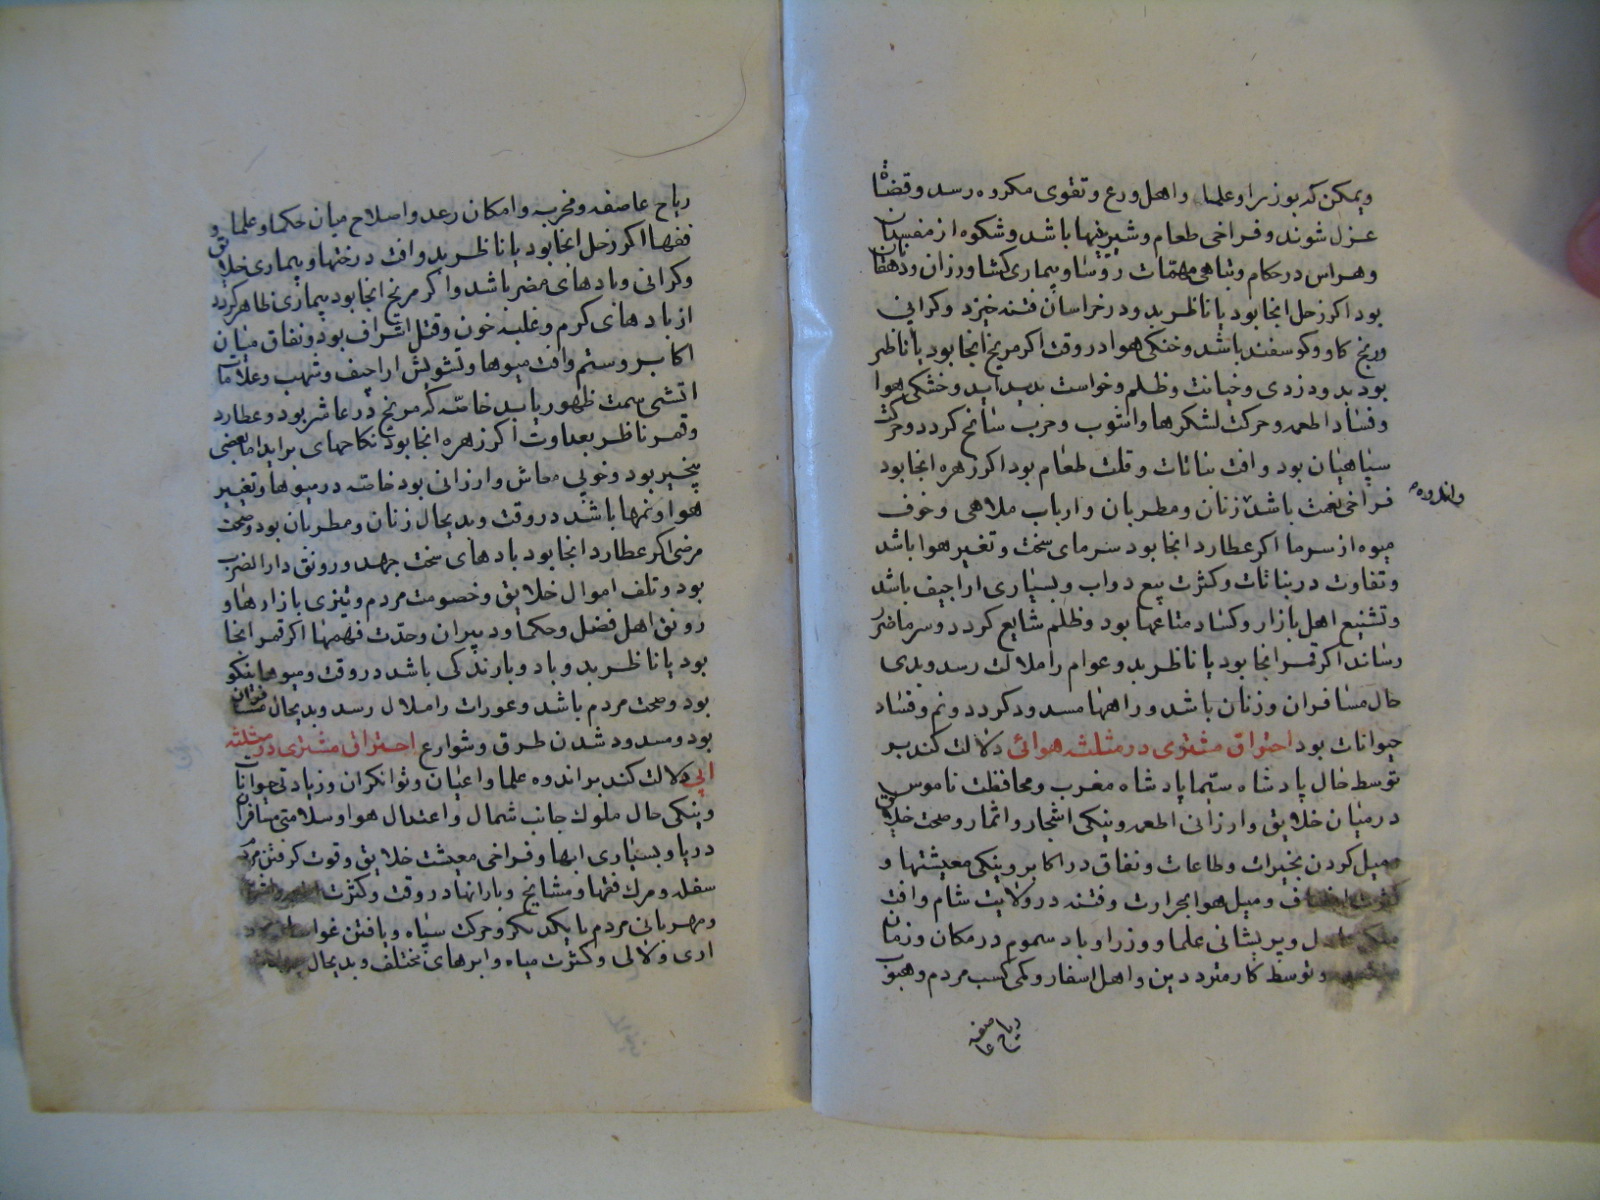 ویمکن که بوزرا و علما و اهل ورع و تقوی مکروه رسد و قضاة
عزل شوند و فراخی طعام و شیرینیها باشد و شکوه از مفسدان
و هراس در حکام و تباهی مهمات روسا و بیماری کشاورزان و دهقانان
بود اکر زحل انجا بود یا ناظر بد و در خراسان فتنه خیزد و کرانی
و رنج کاو و کوسفند باشد و خنکی هوا در وقت اکر مریخ انجا بود یا ناظر
بود بد و دزدی و خیانت و ظلم و خواست بدید اید و خشکی هوا
و فساد اطعمه و حرکت لشکرها و اشوب و حرب سانح کردد و حرکت
سپاهیان بود و افت نباتات و قلت طعام بود اکر زهره انجا بود
فراخی نعمت باشد زنان و مطربان و ارباب ملاهی و خوف
واندوه
میوه از سرما اکر عطارد انجا بود سرمای سخت و تغیر هوا باشد
و تفاوت در نباتات و کثرت بیع دواب و بسیاری اراجیف باشد
و تشنیع اهل بازار و کساد متاعها بود و ظلم شایع کردد و سرما ضرر
رساند اکر قمر انجا بود یا ناظر بد و عوام را ملالت رسد و بدی
حال مسافران و زنان باشد و راهها مسدود کردد و نم و فساد
حیوانات بود احتراق مشتری در مثلثه هوائی دلالت کند بر
توسط حال پادشاه سیما پادشاه مغرب و محافظت ناموس
در میان خلایق و ارزانی اطعمه و نیکی اشجار و اثمار و صحت خلایق
و میل کردن بخیرات و طاعات و نفاق در اکابر و نیکی معیشتها و
کثرت و میل هوا بحرارت و فتنه در ولایت شام و افت
و پریشانی علما و وزرا و باد سموم در مکان و زمان
و توسط کار مترددین و اهل اسفار و کمی کسب مردم و هبوب
ریاح عاصفه
ریاح عاصفه و مخربه و امکان رعد و اصلاح میان حکما و علما و
فقها اکر زحل انجا بود یا ناظر بد و افت درختها و بیماری خلایق
و کرانی و بادهای مضر باشد و اکر مریخ انجا بود بیماری ظاهر کردد
از بادهای کرم و غلبه خون و قتل اشراف بود و نفاق میان
اکابر و ستم و افت میوها و تشویش اراجیف و شهب و علامات
اتشی سمت ظهور یابد خاصه که مریخ در عاشر بود و عطارد
و قمر ناظر بعداوت اکر زهره انجا بود نکاحهای براید اما بعضی
بخیر بود و خوبی معاش و ارزانی بود خاصه در میوها و تغییر
هوا و نمها باشد در وقت و بدیحال زنان و مطربان بود و صحت
مرضی اکر عطارد انجا بود بادهای سخت جهد و رونق دار الضرب
بود و تلف اموال خلایق و خصومت مردم و تیزی بازارها و
رونق اهل فضل و حکما و دبیران و حدت فهمها اکر قمر انجا
بود یا ناظر بد و باد و بارندکی باشد در وقت و میوها نیکو
بود و صحت مردم باشد و عورات را ملال رسد و بدیحال مسافران
بود و مسدود شدن طرق و شوارع احتراق مشتری در مثلثه
ابی دلالت کند بر اندوه علما و اعیان و توانکران و زیادتی حیوانات
و نیکی حال ملوک جانب شمال و اعتدال هوا و سلامتی مسافران
دریا و بسیاری ابها و فراخی معیشت خلایق و قوت کرفتن مردم
سفله و مرک فقها و مشایخ و بارانها در وقت و کثرت
و مهربانی مردم با یکدیکر و حرکت سپاه و یافتن
اری و لالی و کثرت میاه و ابرهای مختلف و بدیحال